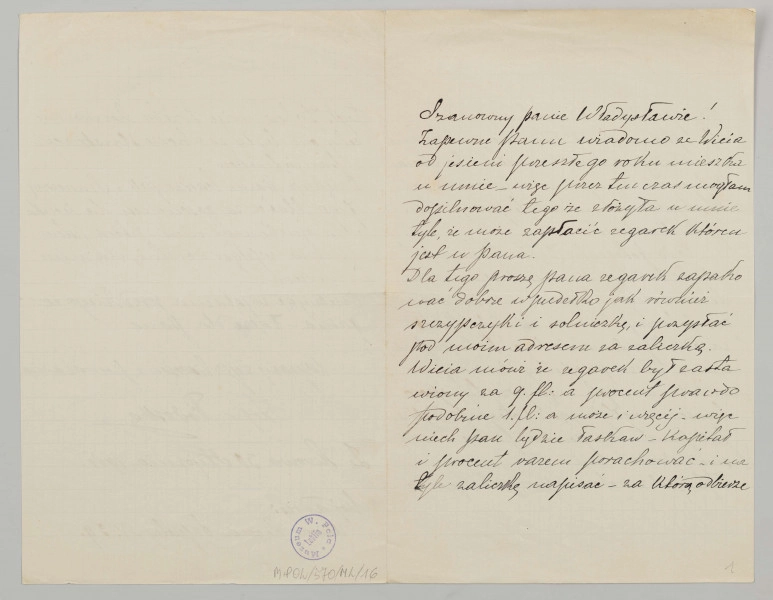 Szanowny panie Władysławie!
Zapewne panu wiadomo ze Wicia
od jesieni przeszłego roku mieszka
u mnie – więc przez ten czas mogłam
dopilnować tego że złożyła u mnie
tyle, że może zapłacić zegarek któren
jest u pana.
Dla tego proszę pana zegarek zapako
wać dobrze w pudełko jak również
szczypczyki i solniczkę, i przysłać
pod moim adresem za zaliczką.
Wicia mówi że zegarek był zasta
wiony za 9. fl: a procent prawdo
podobnie 1. fl: a może i więcej – więc
niech pan będzie łaskaw – Kapitał
i procent razem porachować – i na
tyle zaliczkę napisać – za którą odbierze
Muzeum W. Pola
Lublin
1